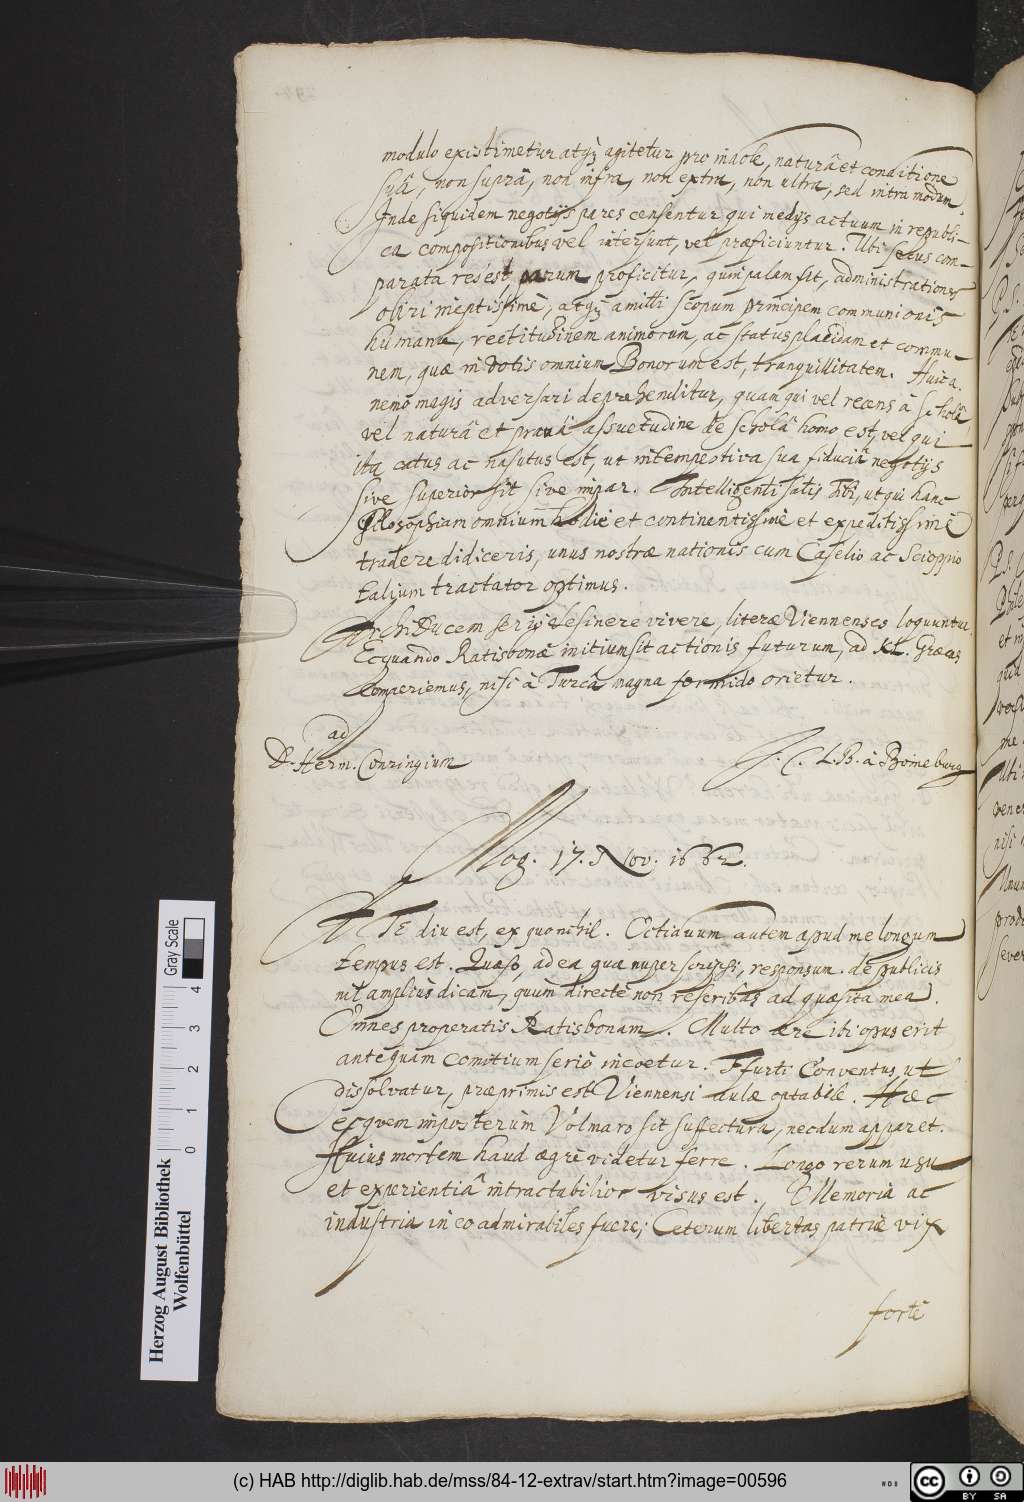 modulo existimetur atq; agitetur pro indole, naturâ et conditione
suâ, non suprâ, non infra, non extra, non ultra, sed intra modum.
Inde siquidem negotijs pares censentur qui medijs actuum in republi-
ca compositionibus vel intersunt, vel præficiuntur. Ubi secus com-
parata res est, parum proficitur, quin palam fit, administrationes
obiri ineptissimè, atq; amitti scopum principem communionis
humanæ, rectitudinem animorum, ac status placidam et commu-
nem, quæ in votis omnium Bonorum est, tranquillitatem. Huica
nemo magis adversari deprehenditur, quam qui vel recens à scholâ,
vel naturâ et pravâ assuetudine de scholâ homo est, vel qui
ita catus ac nasutus est, ut intempestiva sua fiduciâ negotijs
sive superior sit sive impar. Intelligenti satis Tibi, ut qui hanc
Philosophiam omnium hodie et continentissimè et expeditissimè
tradere didiceris, unus nostræ nationis cum Caselio ac Scioppio
talium tractator optimus.
Archiducem serijs desinere vivere, literæ Viennenses loquuntur.
Ecquando Ratisbonæ initium sit actionis futurum, ad Kl. Græcas
comperiemus, nisi à Turcâ magna formido orietur.
ad
D. Herm. Conringium
J. C. L. B. à Boineburg
Mog. 17. Nov. 1662.
A TE diu est, ex quo nihil. Octiduum autem apud me longum
tempus est. Quæso, ad ea quæ nuper scripsi, responsum. de publicis
nil amplius dicam, quum directe non rescribas ad quæsita mea.
Omnes properatis Ratisbonam. Multo ære ibi opus erit
antequam comitium seriò incoetur. Ffurti Conventus, ut
dissolvatur, præprimis est Viennensi aulæ optabile. Hæc
ecquem in posterum Volmaro sit suffectura, necdum apparet.
Huius mortem haud ægrè videtur ferre. Longo rerum usu
et experientiâ intractabilior visus est. Memoria ac
industria in eo admirabiles fuere; Ceterum libertas patriæ vix
forte
Herzog August Bibliothek
Wolfenbüttel
0 1 2 3 4
Gray Scale
(c) HAB http://diglib.hab.de/mss/84-12-extrav/start.htm?image=00596
cc BY SA